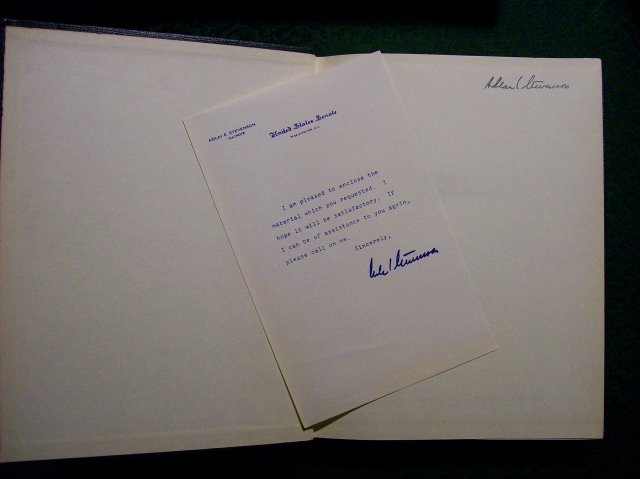 Adlai E Stevenson
ADLAI E. STEVENSON
ILLINOIS
United States Senate
WASHINGTON, D.C.
I am pleased to enclose the
material which you requested. I
hope it will be satisfactory. If
I can be of assistance to you again,
please call on me.
Sincerely,
Adlai E Stevenson